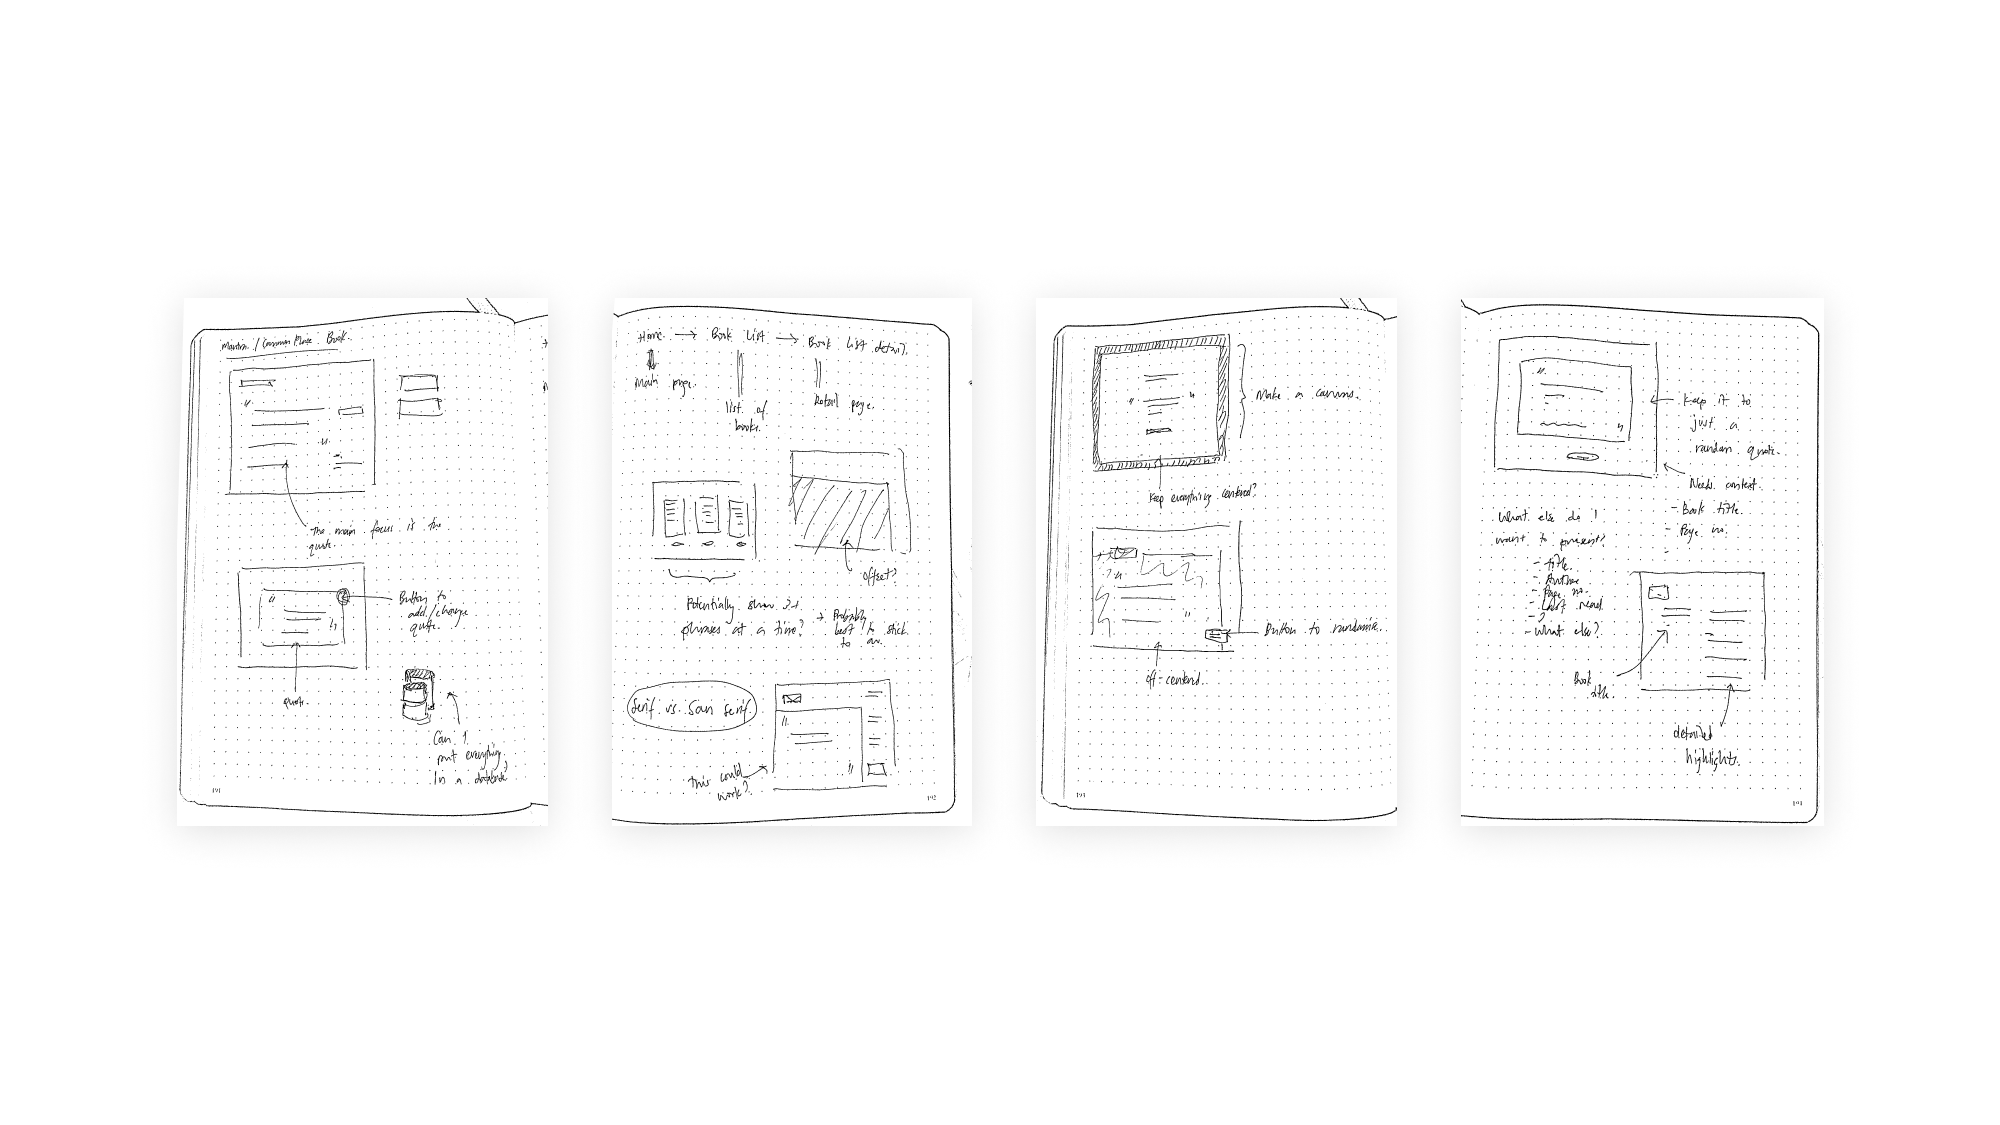 Mantra / Common Place Book.
"
"
The main focus is the
quote.
"
"
Button to
add/change
quote.
quote.
Can I
put everything
in a database?
191
Home → Book List → Book List detail.
Main page.
list of
books.
Detail page.
offset?
Potentially show 3-4
phrases at a time?
→ Probably
best to stick
to one.
Serif vs. San serif.
"
"
This could
work?
192
"
"
Make a canvas.
Keep everything centered?
"
"
Button to randomise.
off-centered.
193
"
"
Keep it to
just a
random quote.
Needs context.
- Book title.
- Page no.
-
What else do I
want to present?
- title.
- Author
- Page no.
- Last read
- ?
- What else?
Book
title.
detailed
highlights.
194